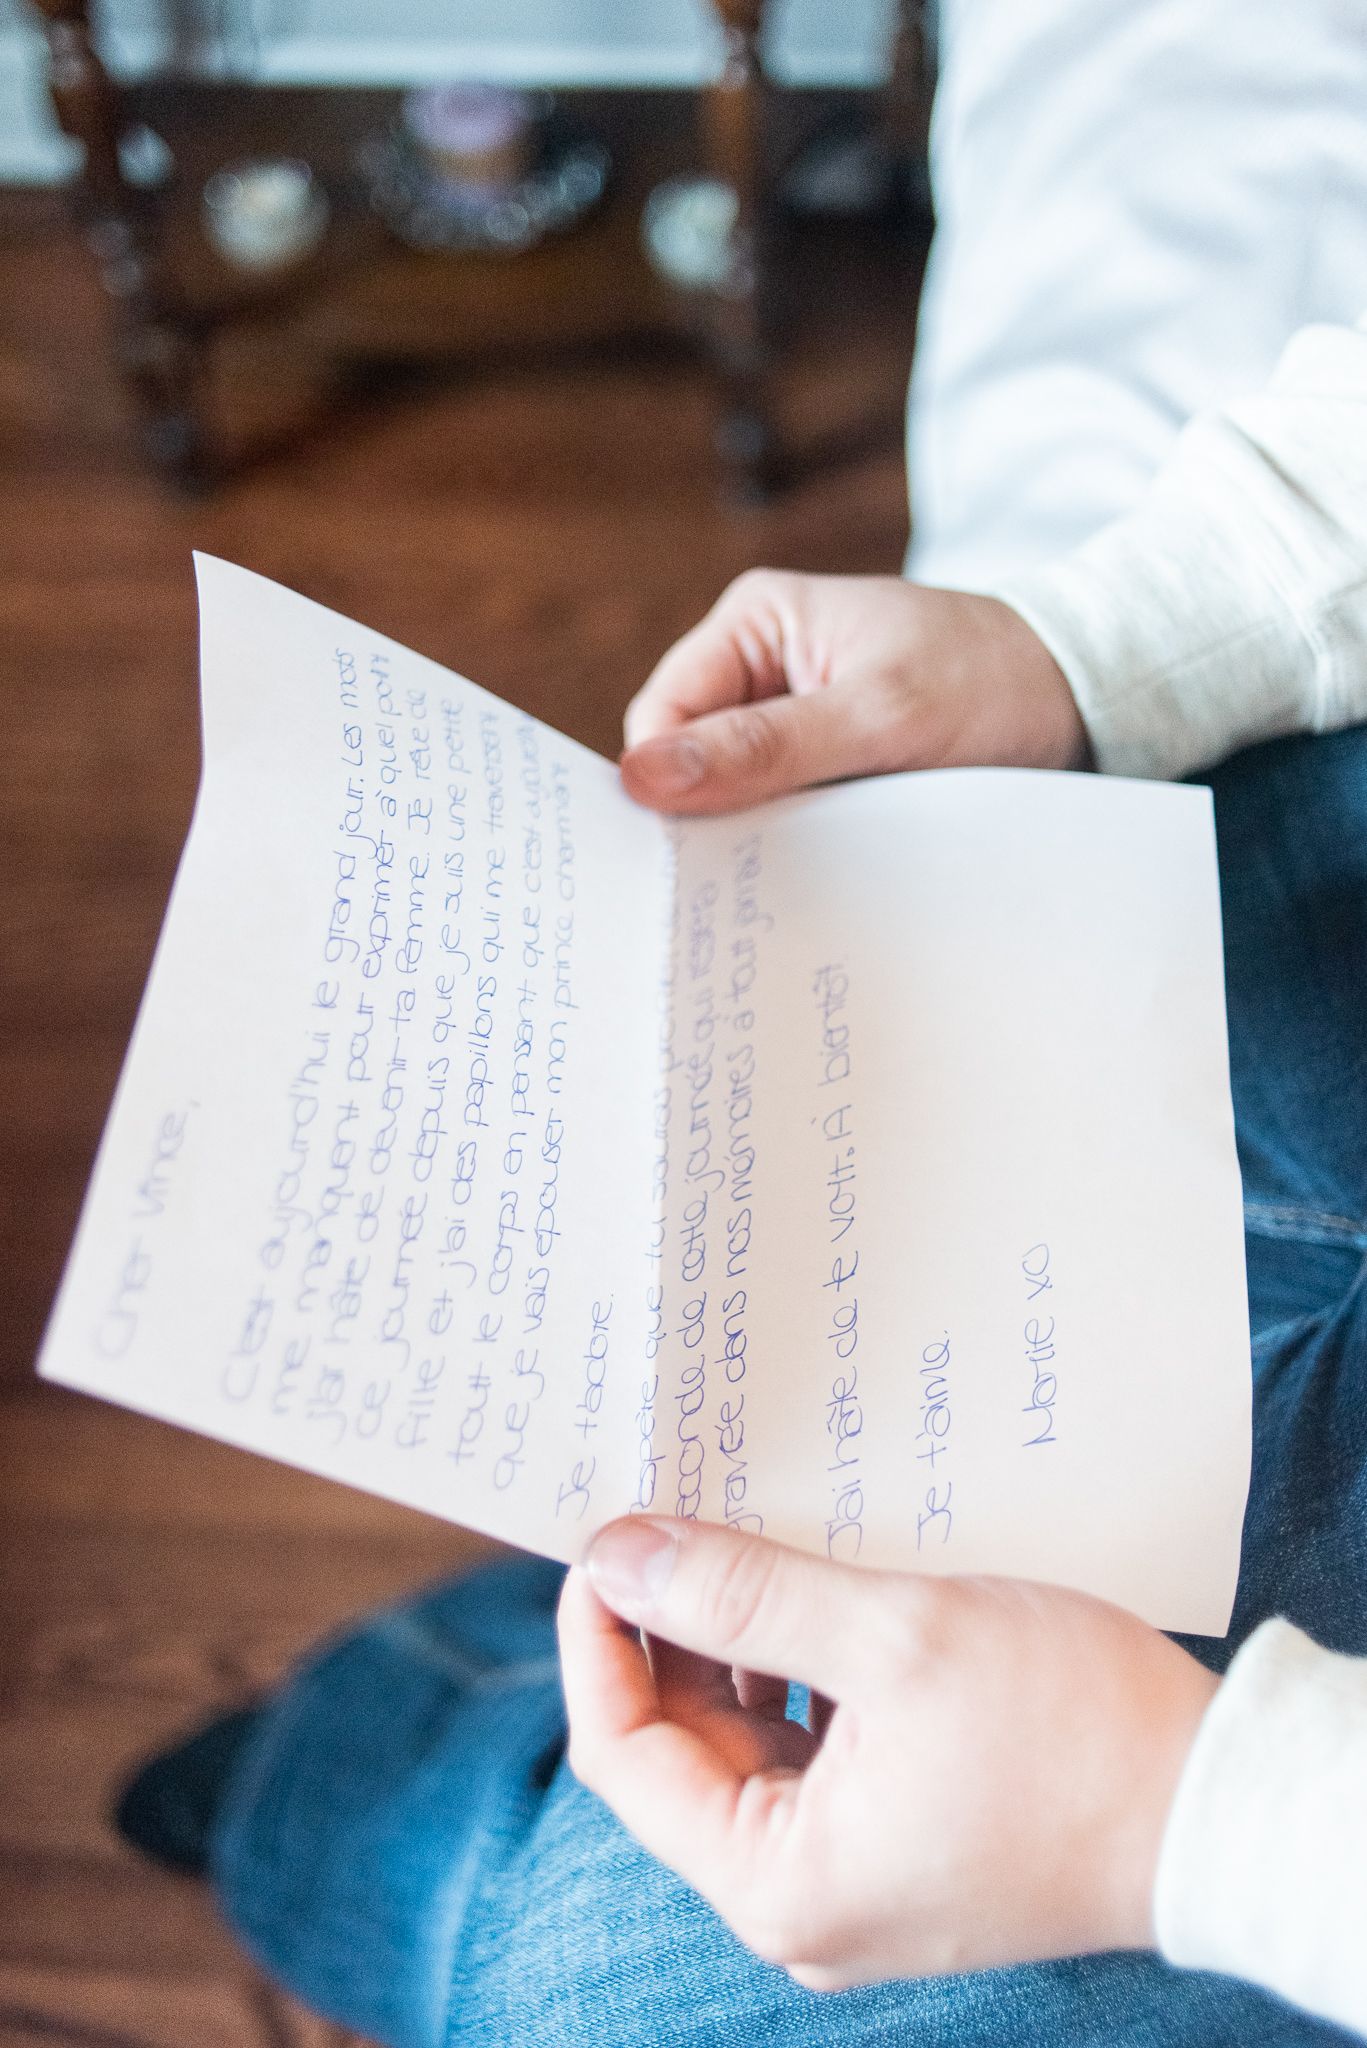 Cher Vince,
C'est aujourd'hui le grand jour. Les mots
me manquent pour exprimer à quel point
j'ai hâte de devenir ta femme. Je rêve de
ce journée depuis que je suis une petite
fille et j'ai des papillons qui me traversent
tout le corps en pensant que c'est aujourd'hui
que je vais épouser mon prince charmant
Je t'adore.
J'espère que tu sauras
seconde de cette journée qui restera
gravée dans nos mémoires à tout jamais
J'ai hâte de te voir. À bientôt.
Je t'aime.
Marie xo